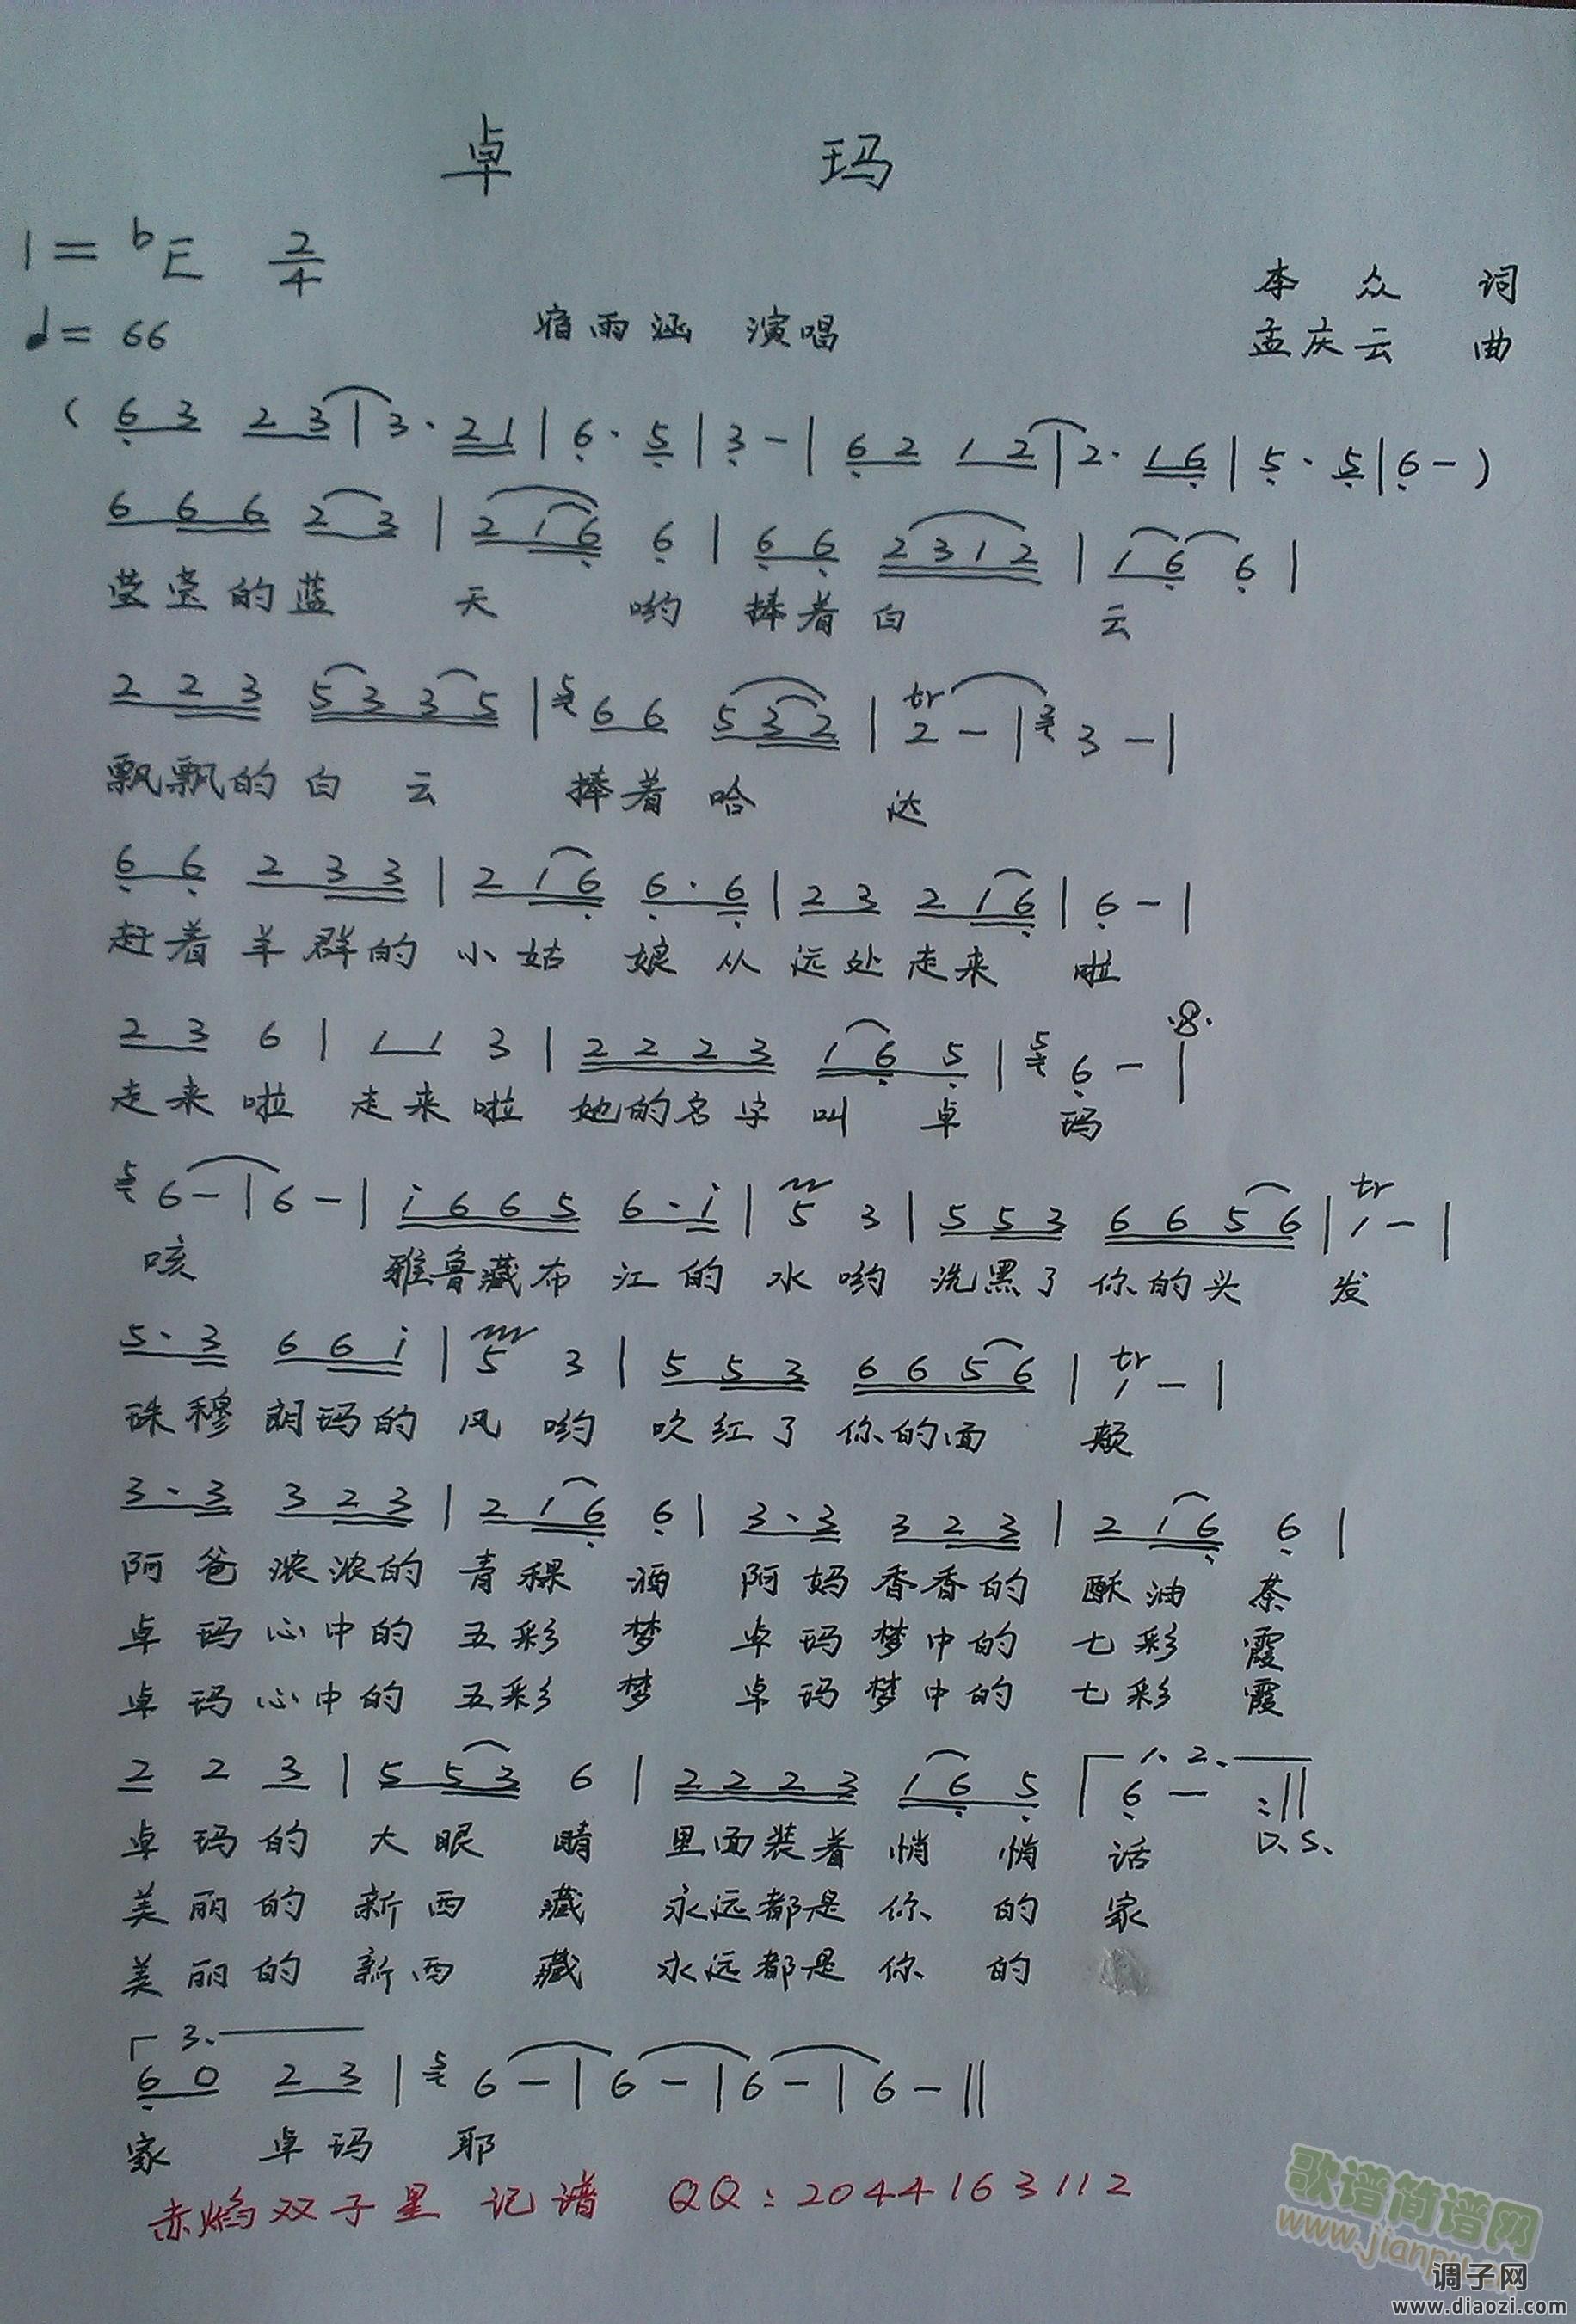 卓 玛
1=bE 2/4
♩=66
宿雨涵 演唱
本众 词
孟庆云 曲
( 6 3 2 3 | 3· 2 1 | 6· 5 | 3 - | 6 2 1 2 | 2· 1 6 | 5· 5 | 6 - )
6 6 6 2 3 | 2 1 6 6 | 6 6 2 3 1 2 | 1 6 6 |
莹莹的蓝 天 哟 捧着白 云
2 2 3 5 3 3 5 | 5 6 6 5 3 2 | tr 2 - | 2 3 - |
飘飘的白 云 捧着哈 达
6 6 2 3 3 | 2 1 6 6· 6 | 2 3 2 1 6 | 6 - |
赶着羊群的小姑 娘从远处走来 啦
2 3 6 | 1 1 3 | 2 2 2 3 1 6 5 | 5 6 - |
走来啦 走来啦 她的名字叫 卓 玛
5 6 - | 6 - | i 6 6 5 6· i | 5 3 | 5 5 3 6 6 5 6 | tr 1 - |
咳 雅鲁藏布江的水哟 洗黑了你的头 发
5· 3 6 6 i | 5 3 | 5 5 3 6 6 5 6 | tr 1 - |
珠穆朗玛的风 哟 吹红了你的面 颊
3· 3 3 2 3 | 2 1 6 6 | 3· 3 3 2 3 | 2 1 6 6 |
阿爸浓浓的青稞 酒 阿妈香香的 酥油 茶
卓玛心中的 五彩 梦 卓玛梦中的 七彩 霞
卓玛心中的 五彩 梦 卓玛梦中的 七彩 霞
2 2 3 | 5 5 3 6 | 2 2 2 3 1 6 5 | 1、2、 6 - :||
卓玛的 大眼 睛 里面装着悄 悄 话 D.S.
美丽的 新西 藏 永远都是你 的 家
美丽的 新西 藏 永远都是你 的
3、
6 0 2 3 | 5 6 - | 6 - | 6 - | 6 - ||
家 卓玛 耶
赤焰双子星 记谱 QQ:2044163112
歌谱简谱网
www.jianpu
调子网
www.diaozi.com